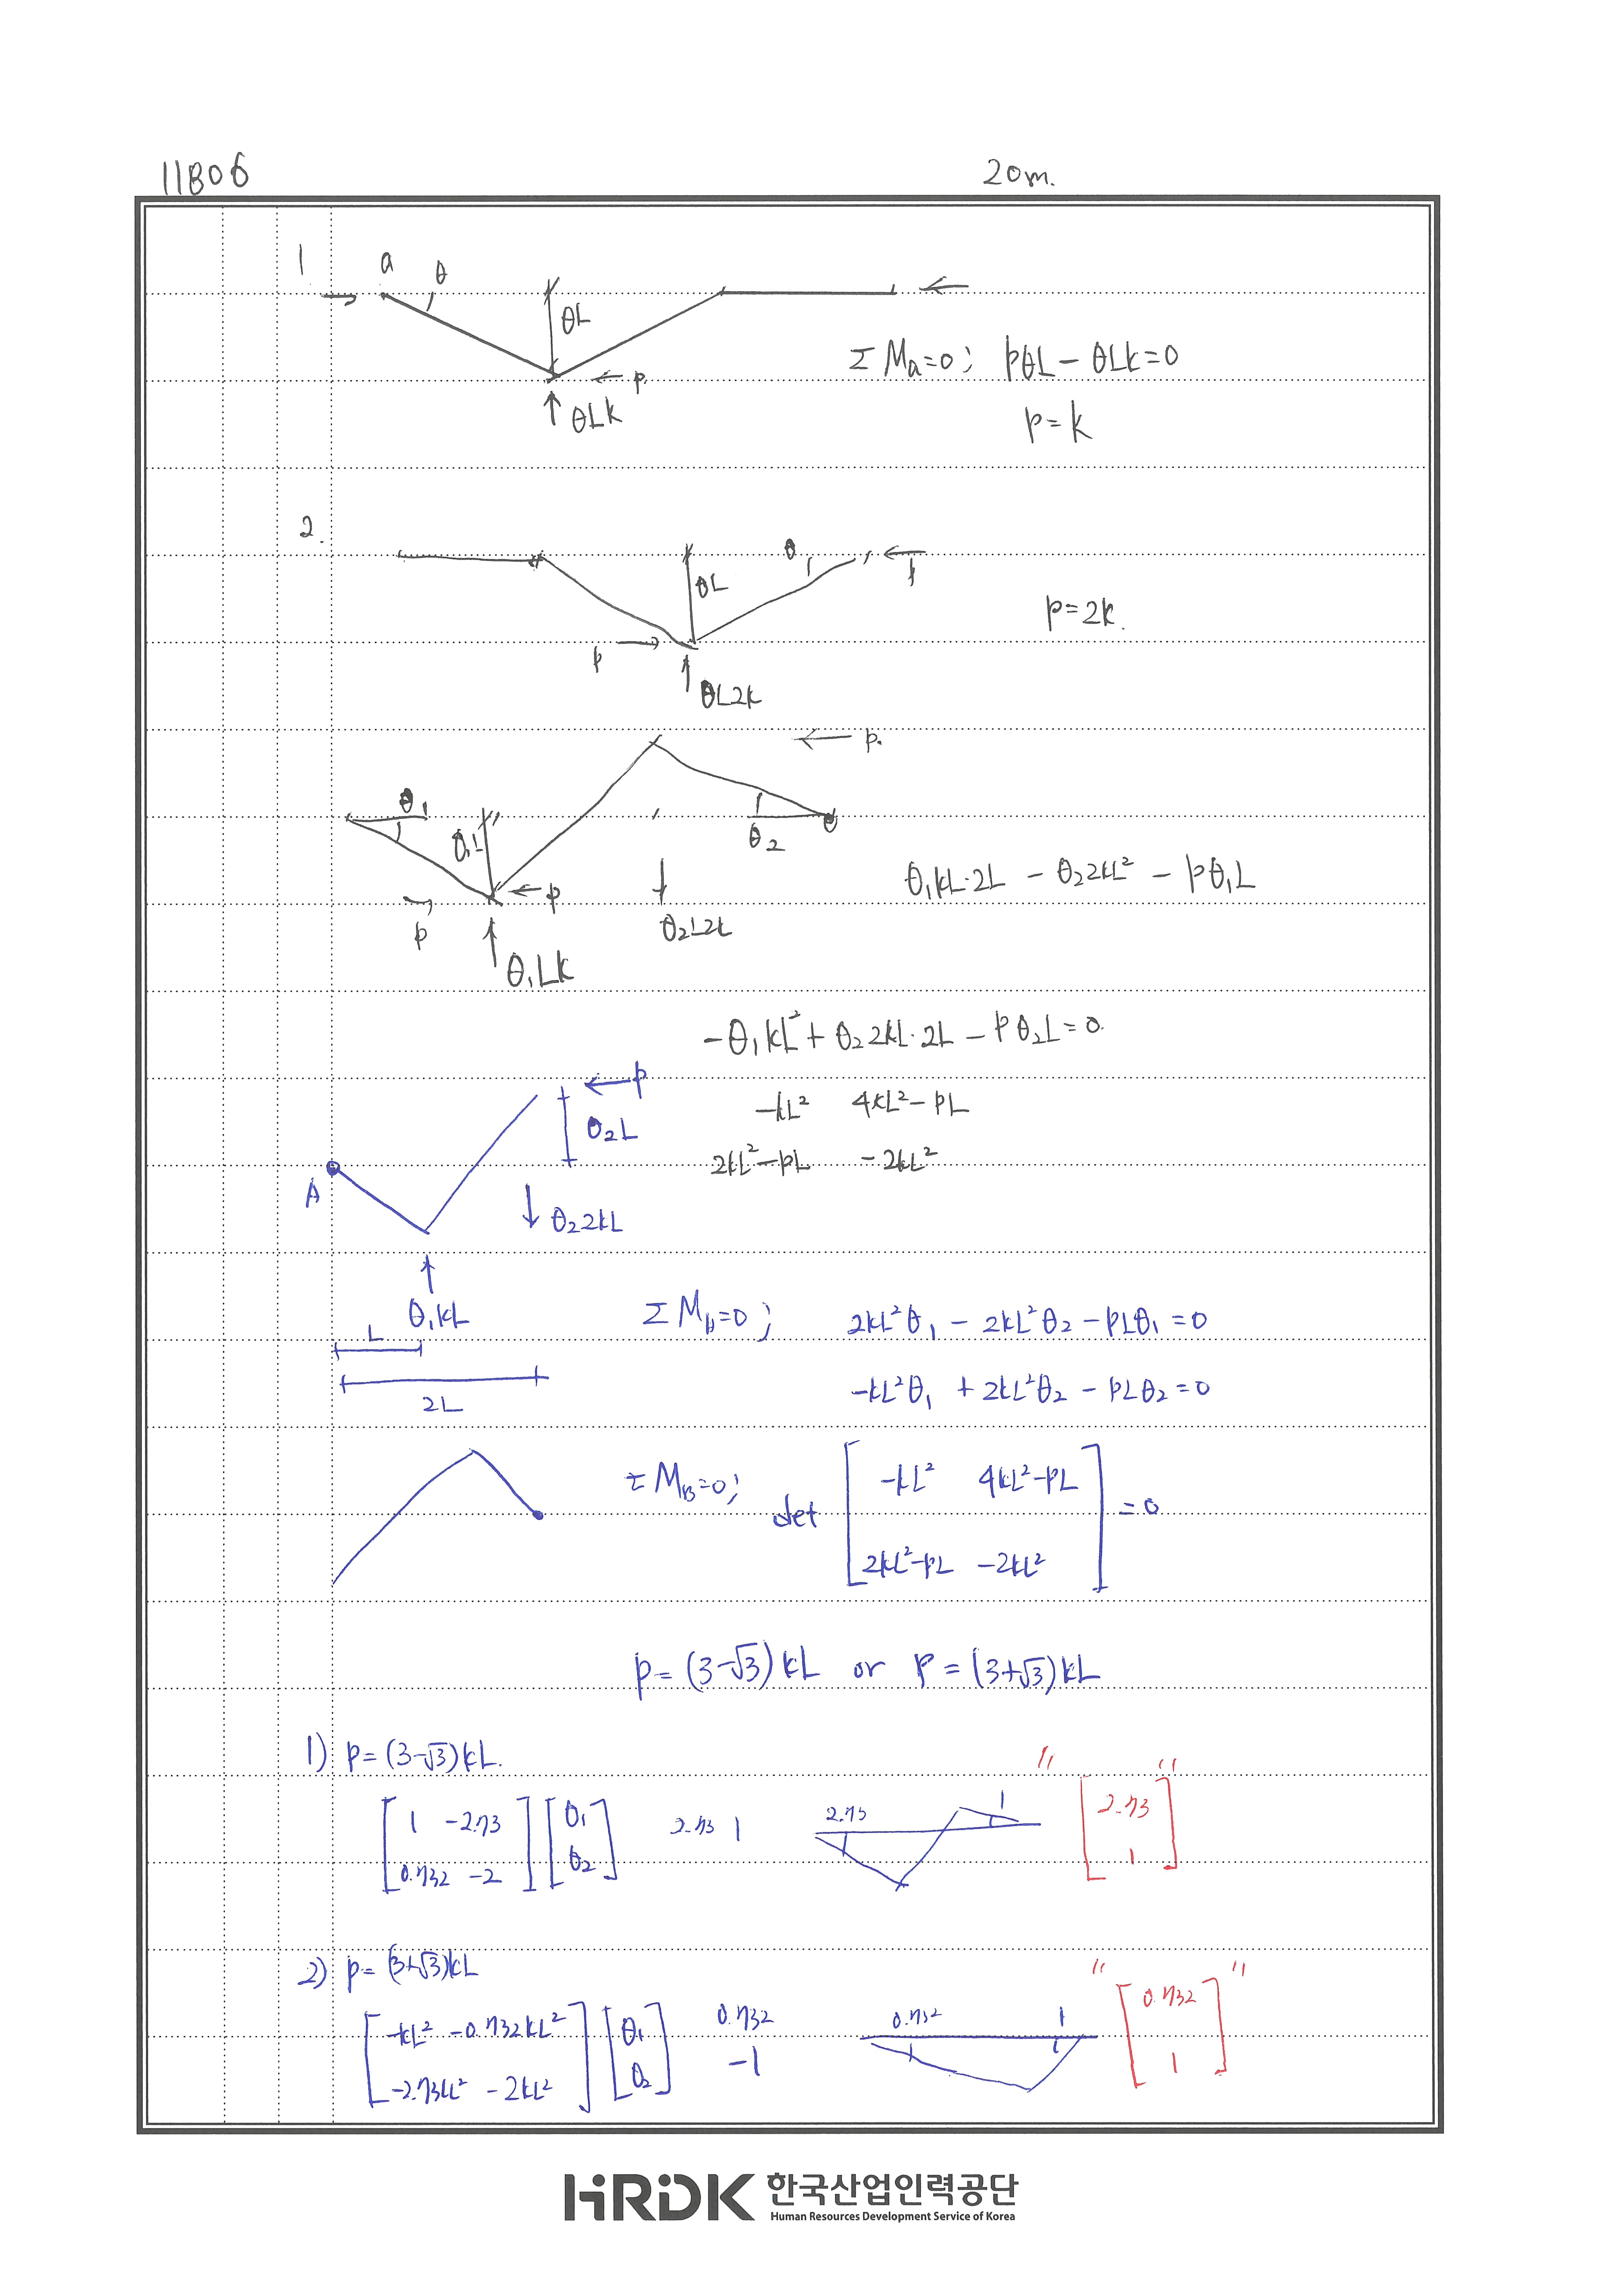 11B06
20m.
1
a
θ
θL
← P.
↑ θLk
Σ Ma=0; pθL - θLk=0
p=k
2.
θL
θ
P
p
θL2k
p=2k.
p.
θ1
θ1L
θ2
p
p
θ2L2k
θ1Lk
θ1kL·2L - θ2 2kL² - pθ1L
-θ1kL² + θ2 2kL·2L - pθ2L=0.
-kL² 4kL²-PL
2kL²-PL -2kL²
p
θ2L
A
θ2 2kL
θ1kL
L
2L
Σ Mb=0; 2kL²θ1 - 2kL²θ2 - pLθ1 =0
-kL²θ1 + 2kL²θ2 - PLθ2 =0
Σ MB=0;
det [ -kL² 4kL²-PL
2kL²-PL -2kL² ] =0
p=(3-√3)kL or p=(3+√3)kL
1) p=(3-√3)kL.
[ 1 -2.73
0.732 -2 ] [ θ1
θ2 ]
2.73 1
2.73 1
" [ 2.73
1 ] "
2) p=(3+√3)kL
[ -kL² -0.732kL²
-2.73kL² -2kL² ] [ θ1
θ2 ]
0.732
-1
0.732 1
" [ 0.732
1 ] "
HRDK 한국산업인력공단
Human Resources Development Service of Korea